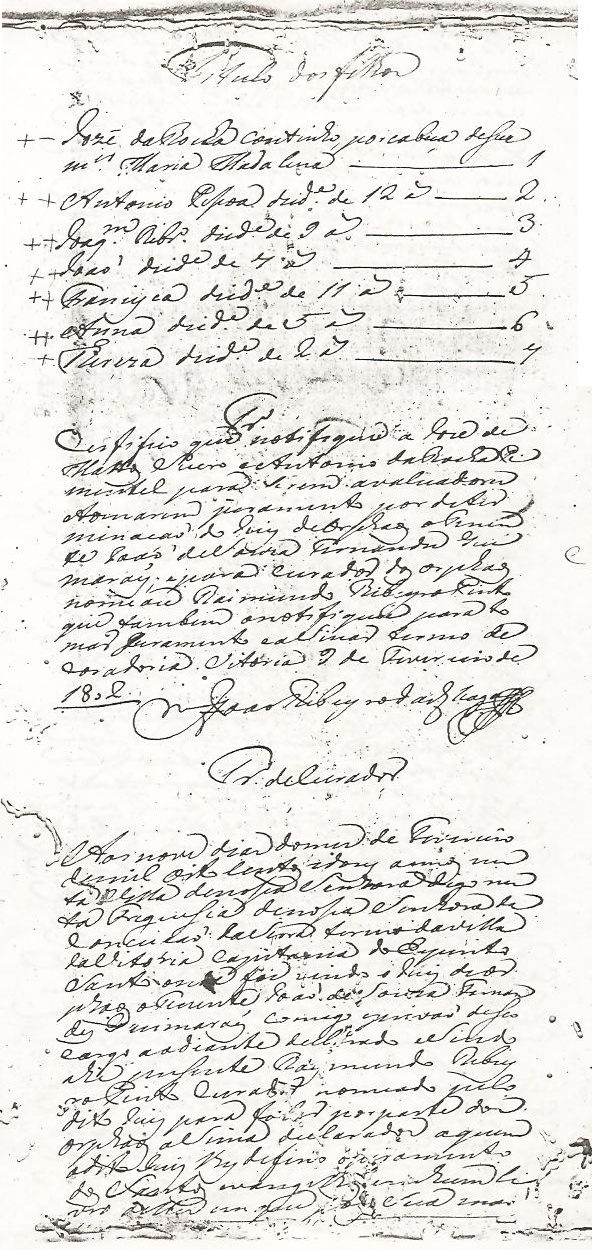 Titulo dos filhos
Jozé da Rocha Coutinho por cabeça de sua
m.er Maria Madalena 1
Antonio Pessoa de id.e de 12 a 2
Joaq.m Ribr.o de id.e de 9 a 3
Joaõ de id.e de 7 a 4
Francisca de id.e de 11 a 5
Anna de id.e de 5 a 6
Tereza de id.e de 2 a 7
Certifico que notifiquei a Jozé de
Mattos e Antonio da Rocha Pi
mentel para serem avaliadores
e tomarem juramento por deter
minaçaõ do Juiz de Orphaos o Tenen
te Joaõ de Souza Fernandes Gui
maraẽs, e para Curador dos orphaos
nomeou Raimundo Ribeyro Pinto
que tambem o notifiquei para to
mar juramento e asinar termo de
Curadoria Vitoria 9 de Fevereiro de
1802
Joao Ribeyro das Chagas
Tr.o de Curador
Aos nove dias do mes de Fevereiro
de mil oito centos e dous annos nes
ta Villa de nosa Senhora digo nes
ta Freguesia de nosa Senhora da
Conceicaõ da Serra termo da villa
da Vitoria capitania do Espirito
Santo onde foi vindo o Juiz de or
phaos o Tenente Joaõ de Souza Fernan
des Guimaraẽs comigo escrivaõ de seu
cargo ao diante declarado e sendo
ahi prezente Raymundo Ribey
ro Pinto Curador nomeado pelo
dito Juiz para por parte dos
orphaos asima declarados a quem
o dito Juiz lhe deferio o juramento
dos Santos evangelhos em hum li
vro delles em que pos sua mao